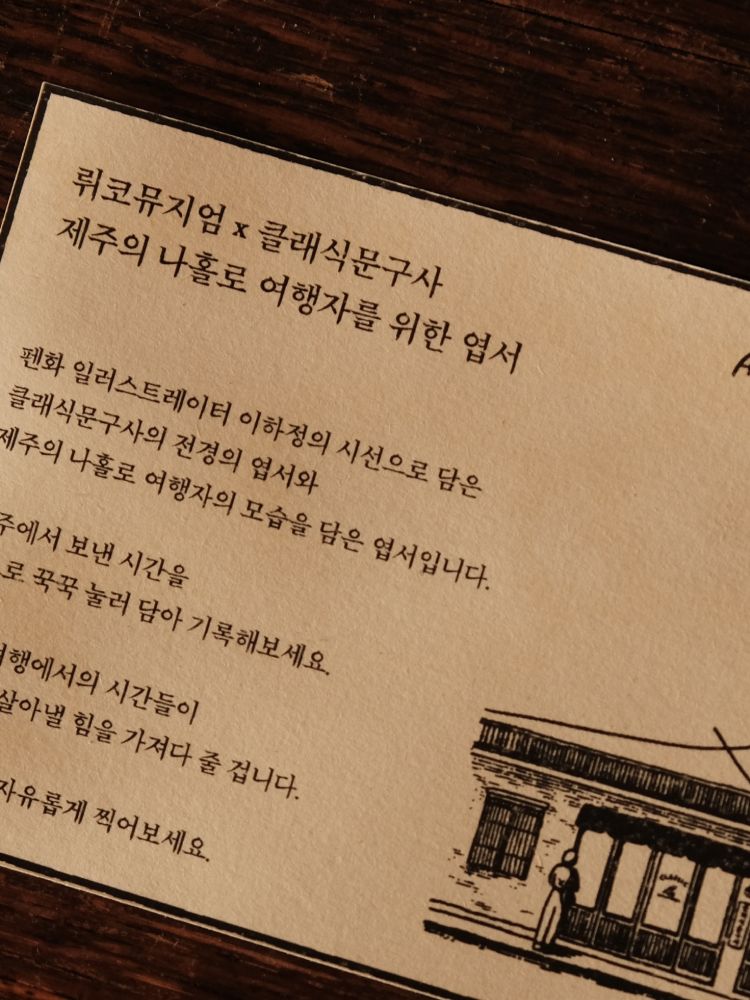 뤼코뮤지엄 x 클래식문구사
제주의 나홀로 여행자를 위한 엽서
펜화 일러스트레이터 이하정의 시선으로 담은
클래식문구사의 전경의 엽서와
제주의 나홀로 여행자의 모습을 담은 엽서입니다.
주에서 보낸 시간을
로 꾹꾹 눌러 담아 기록해보세요.
여행에서의 시간들이
살아낼 힘을 가져다 줄 겁니다.
자유롭게 찍어보세요.